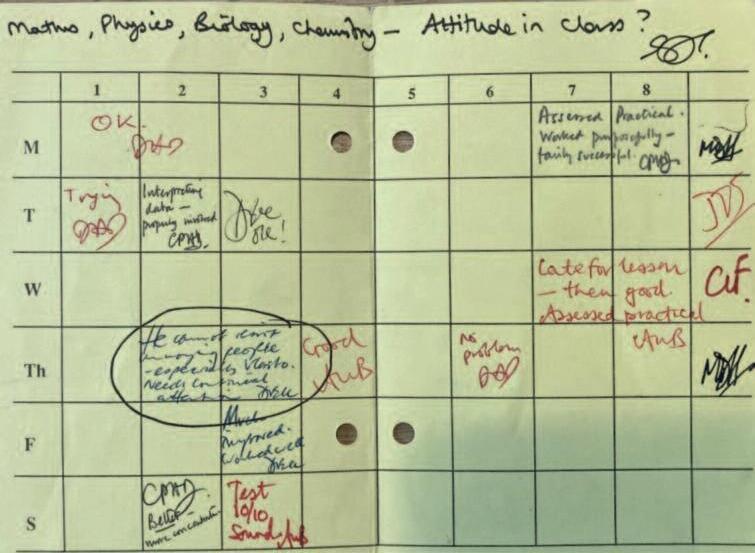 Maths, Physics, Biology, Chemistry – Attitude in class?
1 2 3 4 5 6 7 8
M
OK.
Assessed Practical.
Worked purposefully –
fairly successful. CPMD
T
Trying
Interpreting
data –
properly involved
CPMD.
W
Late for lesson
– then good.
Assessed practical
AWB
Th
He cannot resist
annoying people
– especially
Needs continual
attention
Good
AWB
no
problem
F
Much
improved.
Worked well
S
CPMD.
Better –
more concentration
Test
10/10
Sound